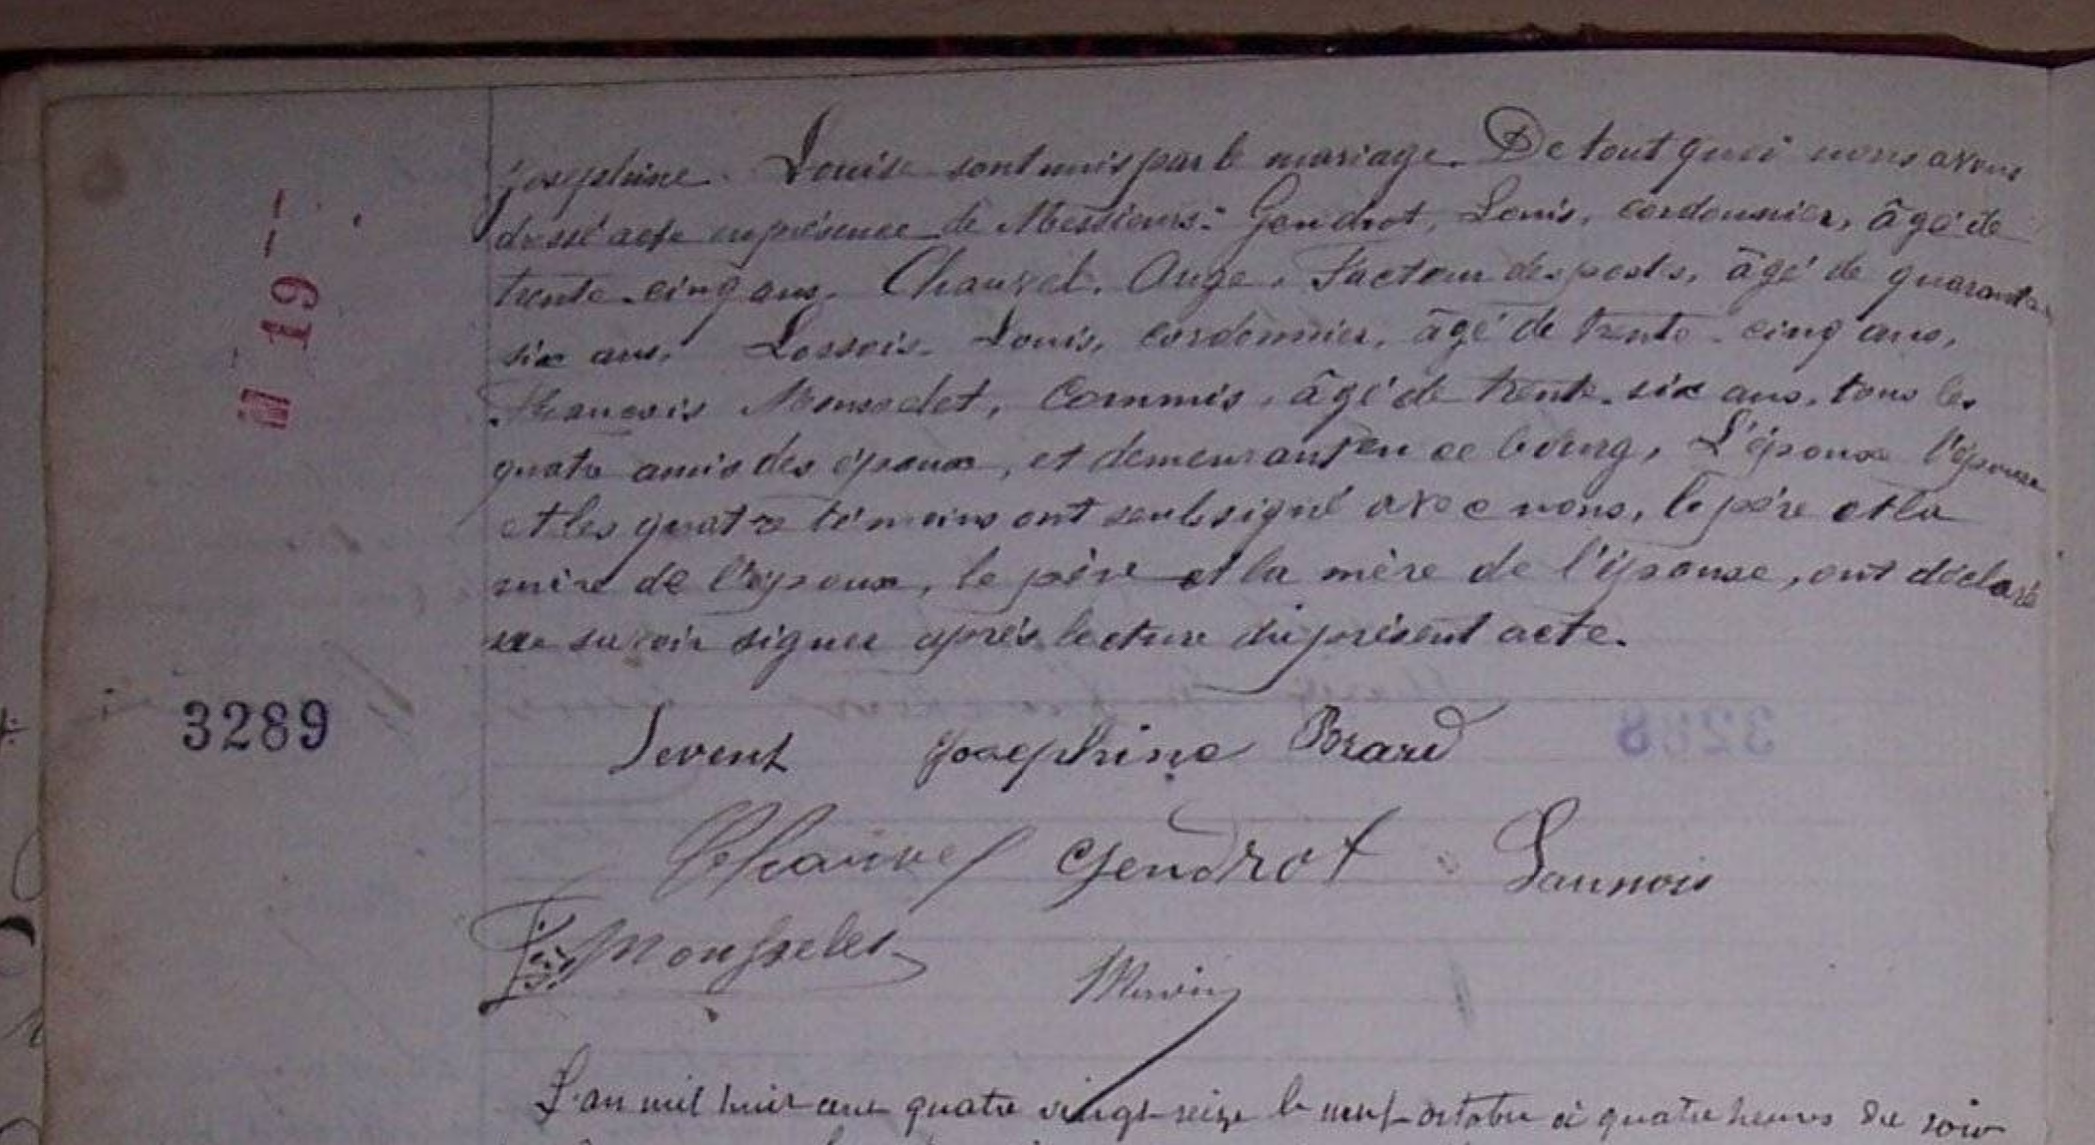 Joséphine Louise sont unis par le mariage. De tout quoi nous avons
dressé acte en présence de Messieurs: Gendrot, Louis, cordonnier, âgé de
trente-cinq ans. Chauvel, Ange, Facteur des postes, âgé de quarante-
six ans, Louis, cordonnier, âgé de trente-cinq ans,
François Monsselet, Commis, âgé de trente-six ans, tous les
quatre amis des époux, et demeurant en ce bourg, L'époux l'épouse
et les quatre témoins ont seuls signé avec nous, le père et la
mère de l'époux, le père et la mère de l'épouse, ont déclaré
ne savoir signer après lecture du présent acte.
3289
Josephine Brard
Chauvel Gendrot Launois
19
L'an mil huit cent quatre vingt-seize le neuf octobre à quatre heures du soir